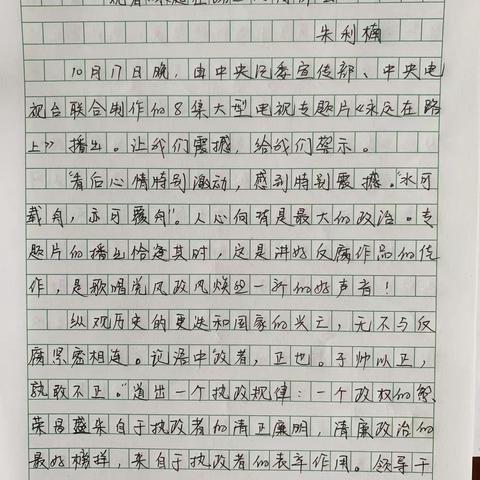 朱利楠
10月17日晚,由中央纪委宣传部、中央电
视台联合制作的8集大型电视专题片《永远在路
上》播出。让我们震撼,给我们警示。
看后心情特别激动,感到特别震撼。"水可
载舟,亦可覆舟"。人心向背是最大的政治。专
题片的播出恰逢其时,这是讲好反腐作品的佳
作,是歌唱党风政风焕然一新的好声音!
纵观历史的更迭和国家的兴亡,无不与反
腐紧密相连。论语中政者,正也。子帅以正,
孰敢不正。"道出一个执政规律:一个政权的繁
荣昌盛来自于执政者的清正廉明,清廉政治的
最好榜样,来自于执政者的表率作用。领导干